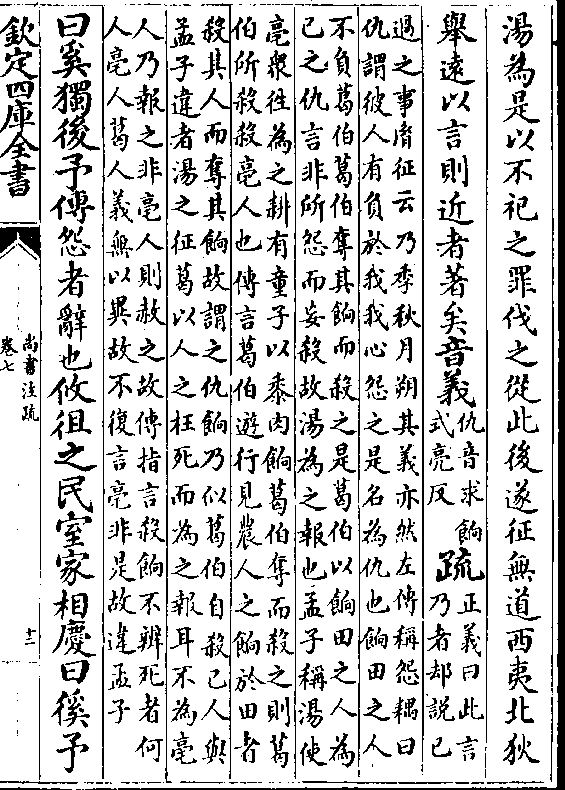 湯為是以不祀之罪伐之從此後遂征無道西夷北狄
舉遠以言則近者著矣音義
仇音求餉
式亮反
疏
正義曰此言
乃者却說已
過之事胤征云乃季秋月朔其義亦然左傳稱怨耦曰
仇謂彼人有負於我我心怨之是名為仇也餉田之人
不負葛伯葛伯奪其餉而殺之是葛伯以餉田之人為
已之仇言非所怨而妄殺故湯為之報也孟子稱湯使
亳衆徃為之耕有童子以黍肉餉葛伯奪而殺之則葛
伯所殺殺亳人也傳言葛伯遊行見農人之餉於田者
殺其人而奪其餉故謂之仇餉乃似葛伯自殺已人與
孟子違者湯之征葛以人之枉死而為之報耳不為亳
人乃報之非亳人則赦之故傳指言殺餉不辨死者何
人亳人葛人義無以異故不復言亳非是故違孟子
曰奚獨後予傳怨者辭也攸徂之民室家相慶曰徯予
欽定四庫全書
尚書注疏
卷七
十二